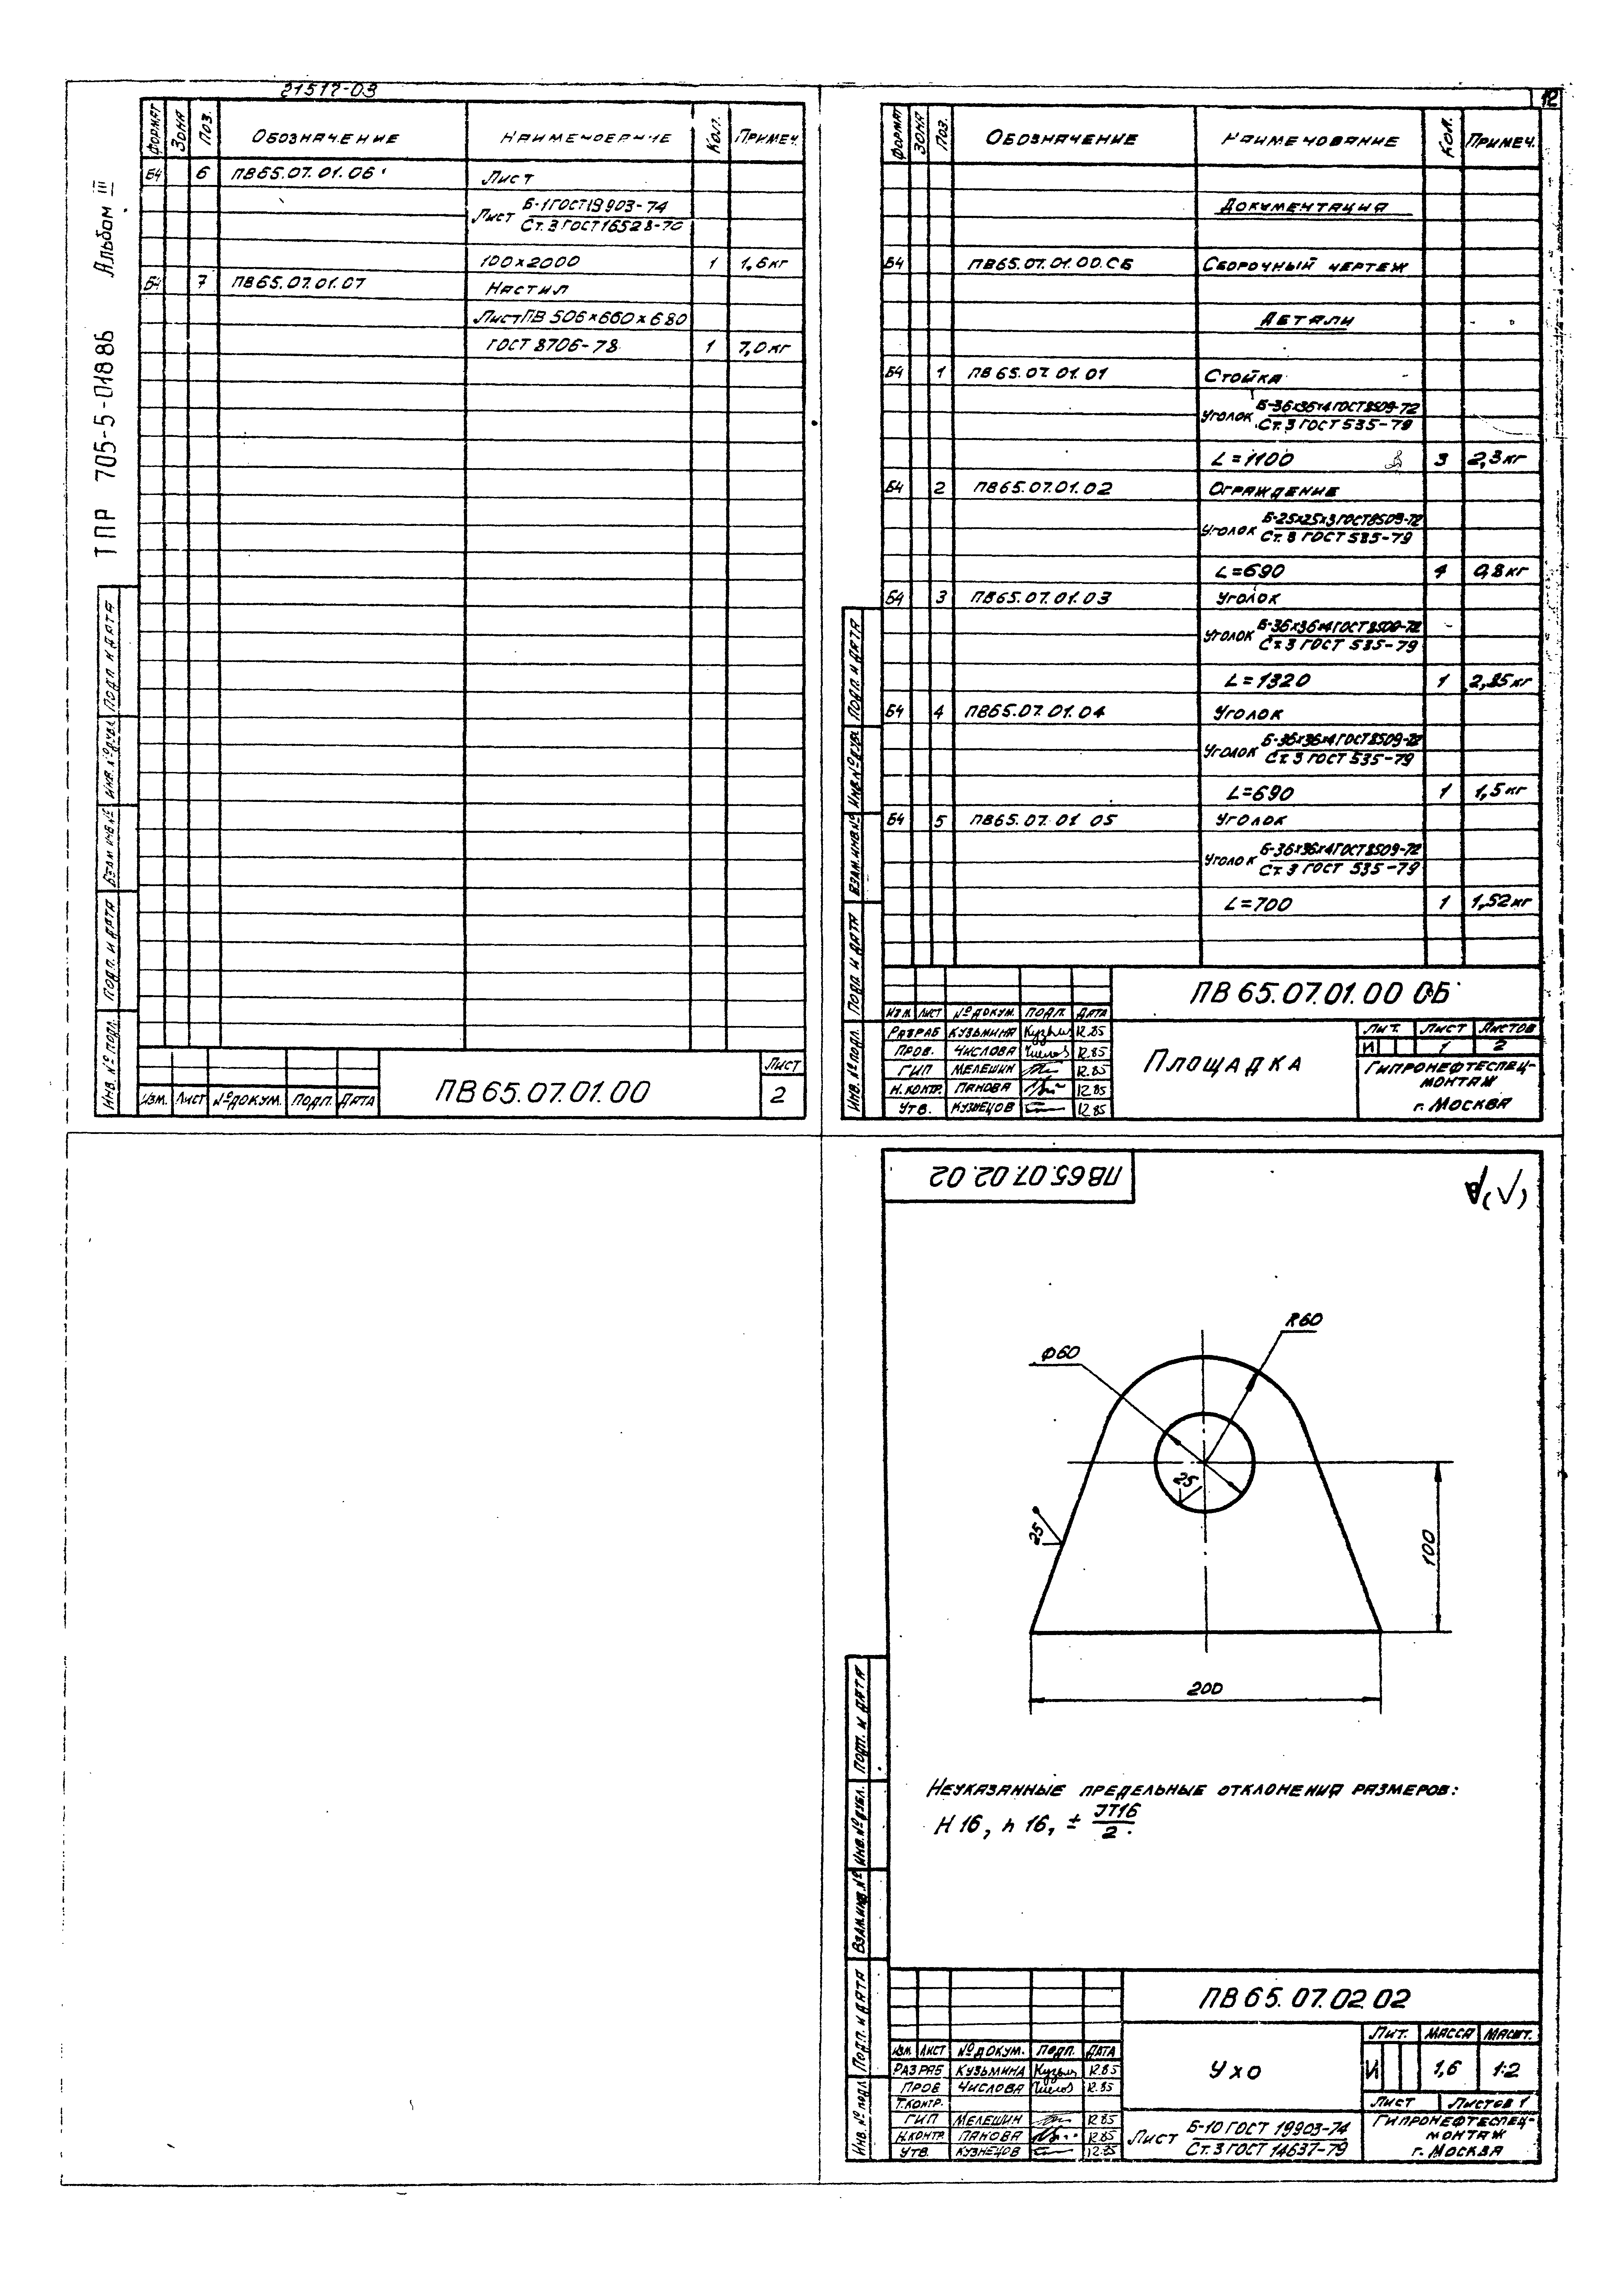 21517-03
12
Альбом III
ТПР 705-5-0188Б
Формат Зона Поз. Обозначение Наименование Кол. Примеч.
Б4 6 ПВ65.07.01.06 Лист
Лист Б-1 ГОСТ 19903-74
Ст.3 ГОСТ 16523-70
100x2000 1 1,6кг
Б4 7 ПВ65.07.01.07 Настил
Лист ПВ 506x660x680
ГОСТ 8706-78 1 7,0кг
Инв. № подл. Подп. и дата Взам инв № Инв. № дубл. Подп. и дата
Изм. Лист № докум. Подп. Дата
ПВ65.07.01.00
Лист
2
Формат Зона Поз. Обозначение Наименование Кол. Примеч.
Документация
Б4 ПВ65.07.01.00.СБ Сборочный чертеж
Детали
Б4 1 ПВ65.07.01.01 Стойка
Уголок Б-36x36x4 ГОСТ 8509-72
Ст.3 ГОСТ 535-79
L=1100 3 2,3кг
Б4 2 ПВ65.07.01.02 Ограждение
Уголок Б-25x25x3 ГОСТ 8509-72
Ст.3 ГОСТ 535-79
L=690 4 0,8кг
Б4 3 ПВ65.07.01.03 Уголок
Уголок Б-36x36x4 ГОСТ 8509-72
Ст.3 ГОСТ 535-79
L=1320 1 2,85кг
Б4 4 ПВ65.07.01.04 Уголок
Уголок Б-36x36x4 ГОСТ 8509-72
Ст.3 ГОСТ 535-79
L=690 1 1,5кг
Б4 5 ПВ65.07.01 05 Уголок
Уголок Б-36x36x4 ГОСТ 8509-72
Ст.3 ГОСТ 535-79
L=700 1 1,52кг
Инв. № подл. Подп. и дата Взам. инв № Инв. № дубл. Подп. и дата
ПВ 65.07.01.00 СБ
Изм. Лист № докум. Подп. Дата
Разраб Кузьмина 12.85
Пров. Числова 12.85
ГИП Мелешин 12.85
Н.контр. Панова 12.85
Утв. Кузнецов 12.85
Площадка
Лит. Лист Листов
И 1 2
Гипронефтеспец-
монтаж
г. Москва
ПВ65.07.02.02
R60
Ф60
25
25
100
200
Неуказанные предельные отклонения размеров:
H 16, h 16, ± JT16
2
Инв. № подл. Подп. и дата Взам. инв. № Инв. № дубл. Подп. и дата
ПВ 65.07.02 02
Изм. Лист № докум. Подп. Дата
Разраб Кузьмина 12.85
Пров Числова 12.85
Т.контр.
ГИП Мелешин 12.85
Н.контр. Панова 12.85
Утв. Кузнецов 12.85
Ухо
Лит. Масса Масшт.
И 1,6 1:2
Лист Листов 1
Лист Б-10 ГОСТ 19903-74
Ст.3 ГОСТ 14637-79
Гипронефтеспец-
монтаж
г. Москва